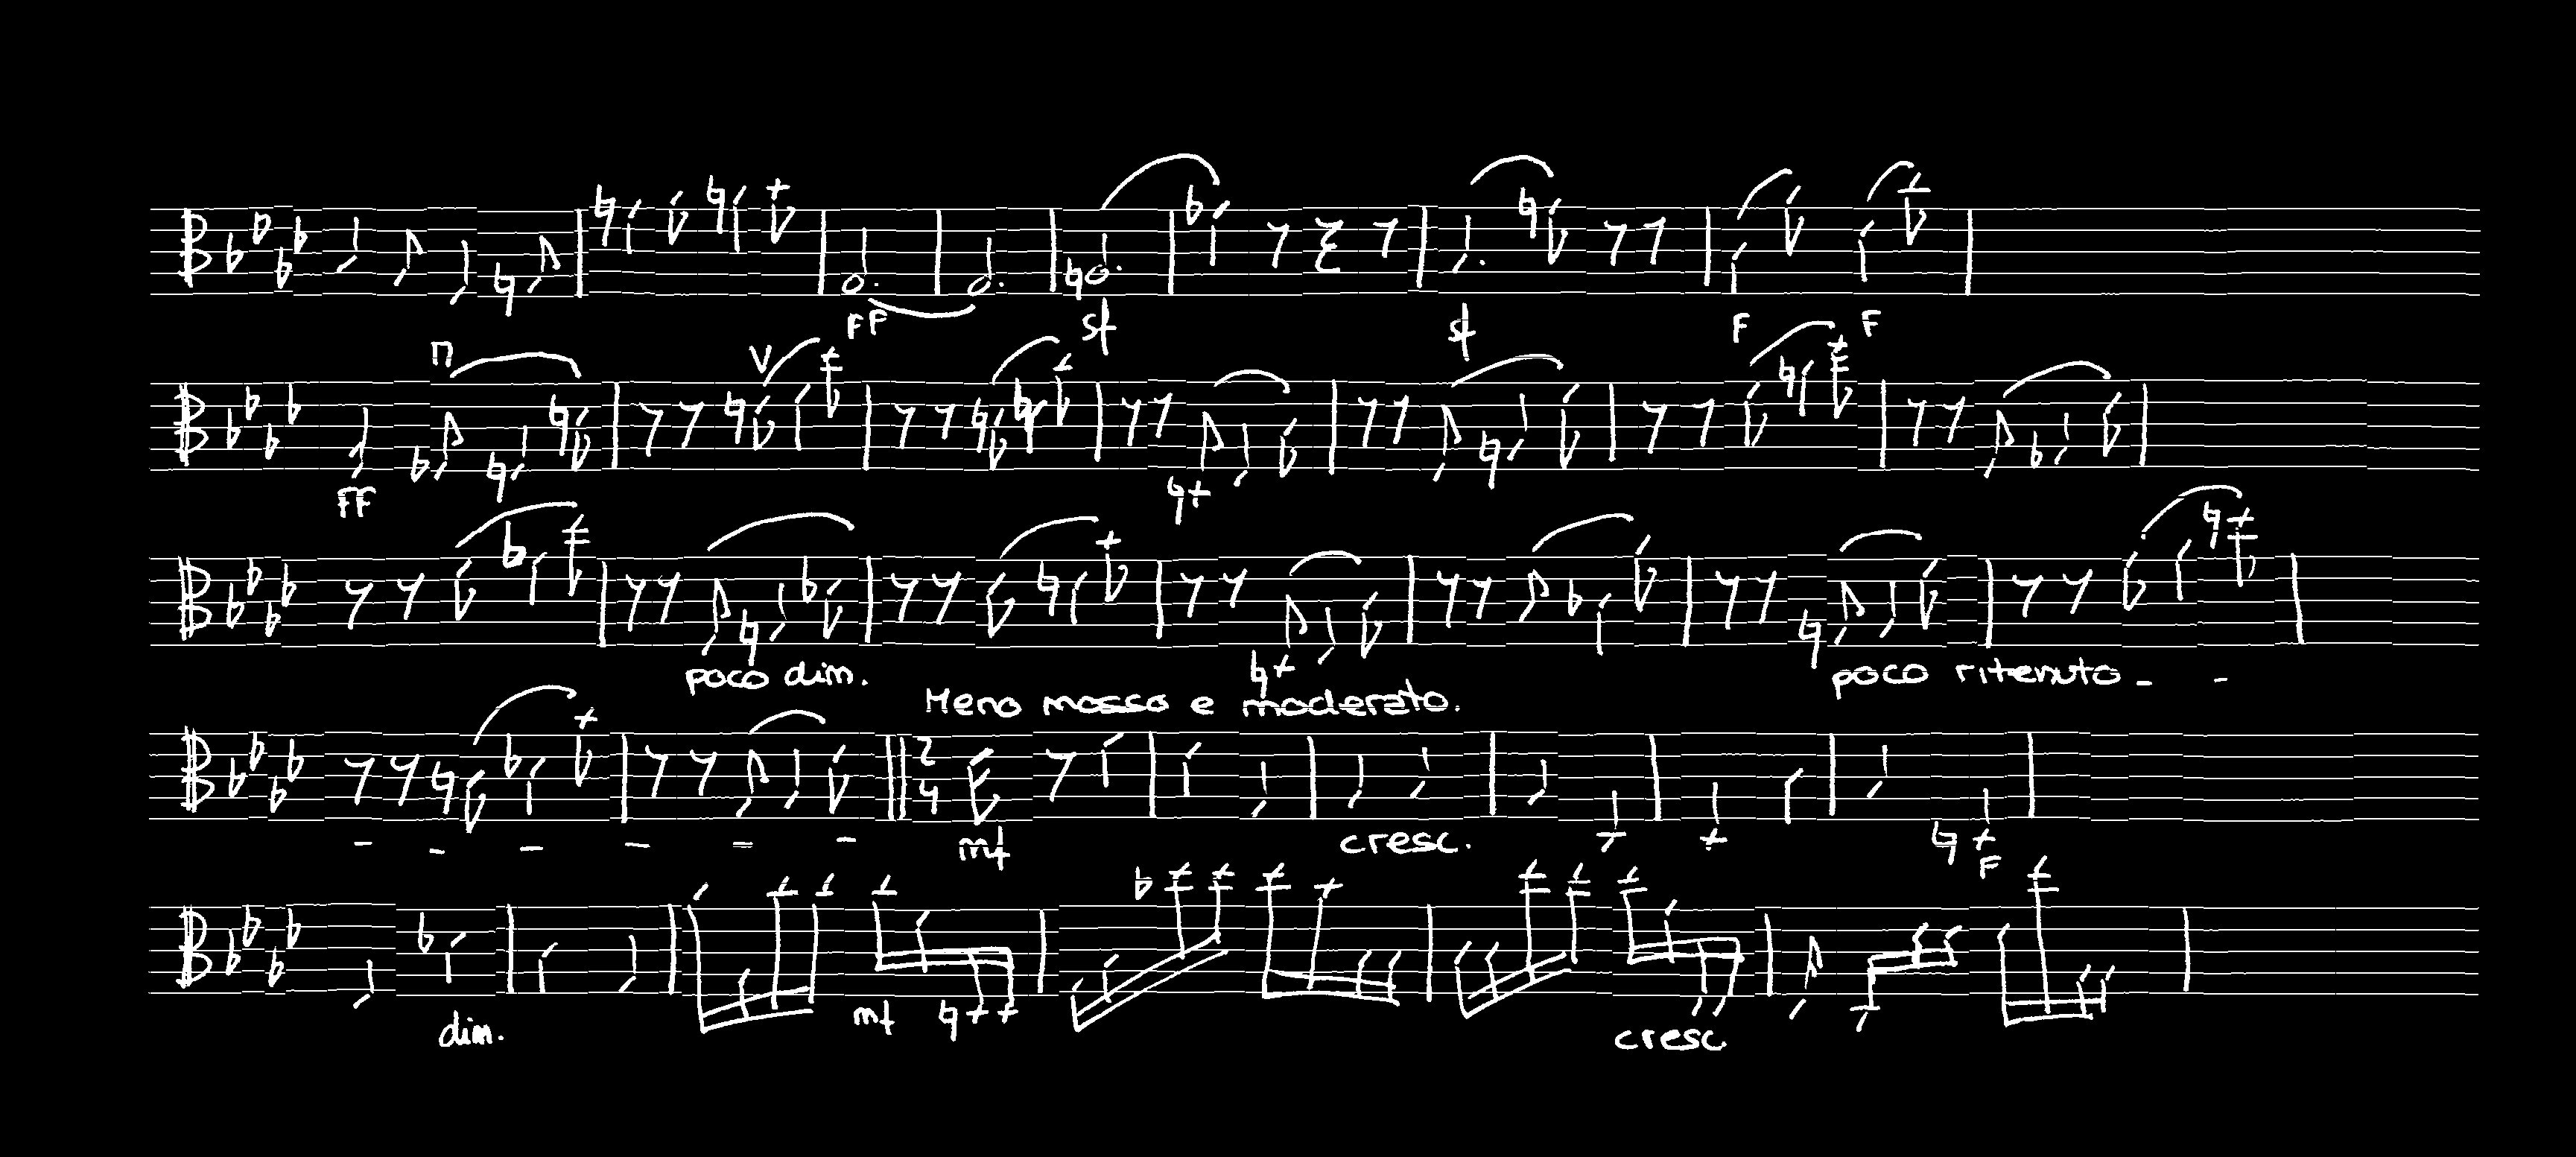 FF sf sf F F
FF
poco dim. poco ritenuto - -
Meno mosso e moderato.
- - - - = -
2
4
mf cresc. F
dim. mf cresc